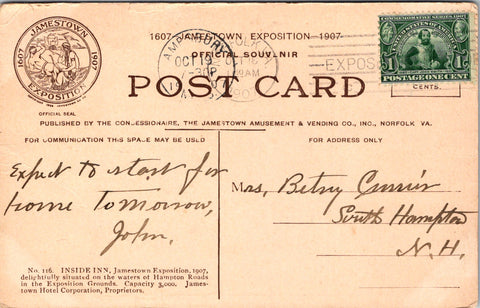 1607 JAMESTOWN EXPOSITION -1907-
OFFICIAL SOUVENIR
JAMESTOWN
1607 1907
EXPOSITION
OFFICIAL SEAL
OCT 19
7-30P
COMMEMORATIVE SERIES 1907
1 POSTAGE ONE CENT 1
EXPOS
POST CARD
CENTS.
PUBLISHED BY THE CONCESSIONAIRE, THE JAMESTOWN AMUSEMENT & VENDING CO., INC., NORFOLK VA.
FOR COMMUNICATION THIS SPACE MAY BE USED
FOR ADDRESS ONLY
Expect to start for
home tomorrow,
John.
Mrs, Betsy Currier
South Hampton
N. H.
No. 116. INSIDE INN, Jamestown Exposition, 1907,
delightfully situated on the waters of Hampton Roads
in the Exposition Grounds. Capacity 3,000. James-
town Hotel Corporation, Proprietors.